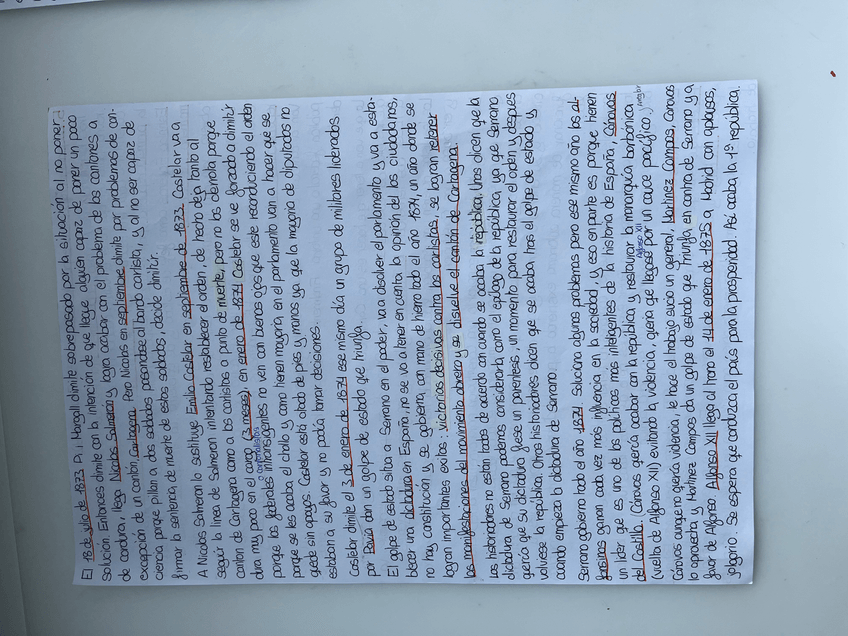 El 18 de julio de 1873 Pi i Margall dimite sobrepasado por la situación al no poner
solución. Entonces dimite con la intención de que llegue alguien capaz de poner un poco
de cordura, llega Nicolás Salmerón y logra acabar con el problema de los cantones a
excepción de un cantón Cartagena. Pero Nicolás en septiembre dimite por problemas de con-
ciencia porque pillan a dos soldados pasándose al bando carlista, y al no ser capaz de
firmar la sentencia de muerte de estos soldados, decide dimitir.
A Nicolás Salmerón lo sustituye Emilio Castelar en septiembre de 1873. Castelar va a
seguir la línea de Salmerón intentando restablecer el orden, de hecho deja tanto al
cantón de Cartagena como a los carlistas a punto de muerte, pero no los derrota porque
dura muy poco en el cargo (3 meses), en enero de 1874 Castelar se ve forzado a dimitir
porque los federales intransigentes no ven con buenos ojos que este reconduciendo el orden
o cantonalistas
porque se les acaba el chollo y como tienen mayoría en el parlamento van a hacer que se
quede sin apoyos. Castelar está atado de pies y manos ya que la mayoría de diputados no
estaban a su favor y no podía tomar decisiones.
Castelar dimite el 3 de enero de 1874 ese mismo día un grupo de militares liderados
por Pavía dan un golpe de estado que triunfa.
El golpe de estado sitúa a Serrano en el poder, va a disolver el parlamento y va a esta-
blecer una dictadura en España, no se va a tener en cuenta la opinión del los ciudadanos,
no hay constitución y se gobierna con mano de hierro todo el año 1874, un año donde se
logran importantes exitos: victorias decisivas contra los carlistas, se logran retener
las manifestaciones del movimiento obrero y se disuelve el cantón de Cartagena.
Los historiadores no están todos de acuerdo con cuando se acaba la república. Unos dicen que la
dictadura de Serrano podemos considerarla como el epílogo de la república, ya que Serrano
quería que su dictadura fuese un parentesis, un momento para restaurar el orden y después
volviese la república. Otros historiadores dicen que se acaba tras el golpe de estado y
cuando empieza la dictadura de Serrano.
Serrano gobierna todo el año 1874. Soluciona algunos problemas pero ese mismo año los al-
fonsinos ganan cada vez más influencia en la sociedad, y eso en parte es porque tienen
un líder que es uno de los políticos más inteligentes de la historia de España, Cánovas
del Castillo. Cánovas quería acabar con la república y restaurar la monarquía borbónica
Alfonso XII
(vuelta de Alfonso XII) evitando la violencia, quería que llegase por un cauce pacífico).
Cánovas aunque no quería violencia, le hace el trabajo sucio un general, Martínez Campos, Cánovas
lo aprovecha y Martínez Campos da un golpe de estado que triunfa en contra de Serrano y a
favor de Alfonso. Alfonso XII llega el trono el 14 de enero de 1875 a Madrid con aplausos,
jolgorio. Se espera que conduzca el país para la prosperidad. Así acaba la 1ª república.